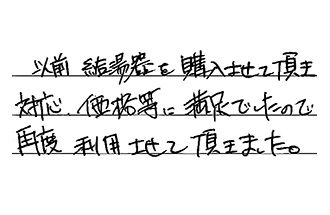 以前 給湯器を購入させて頂き
対応、価格等に満足でしたので
再度 利用させて頂きました。